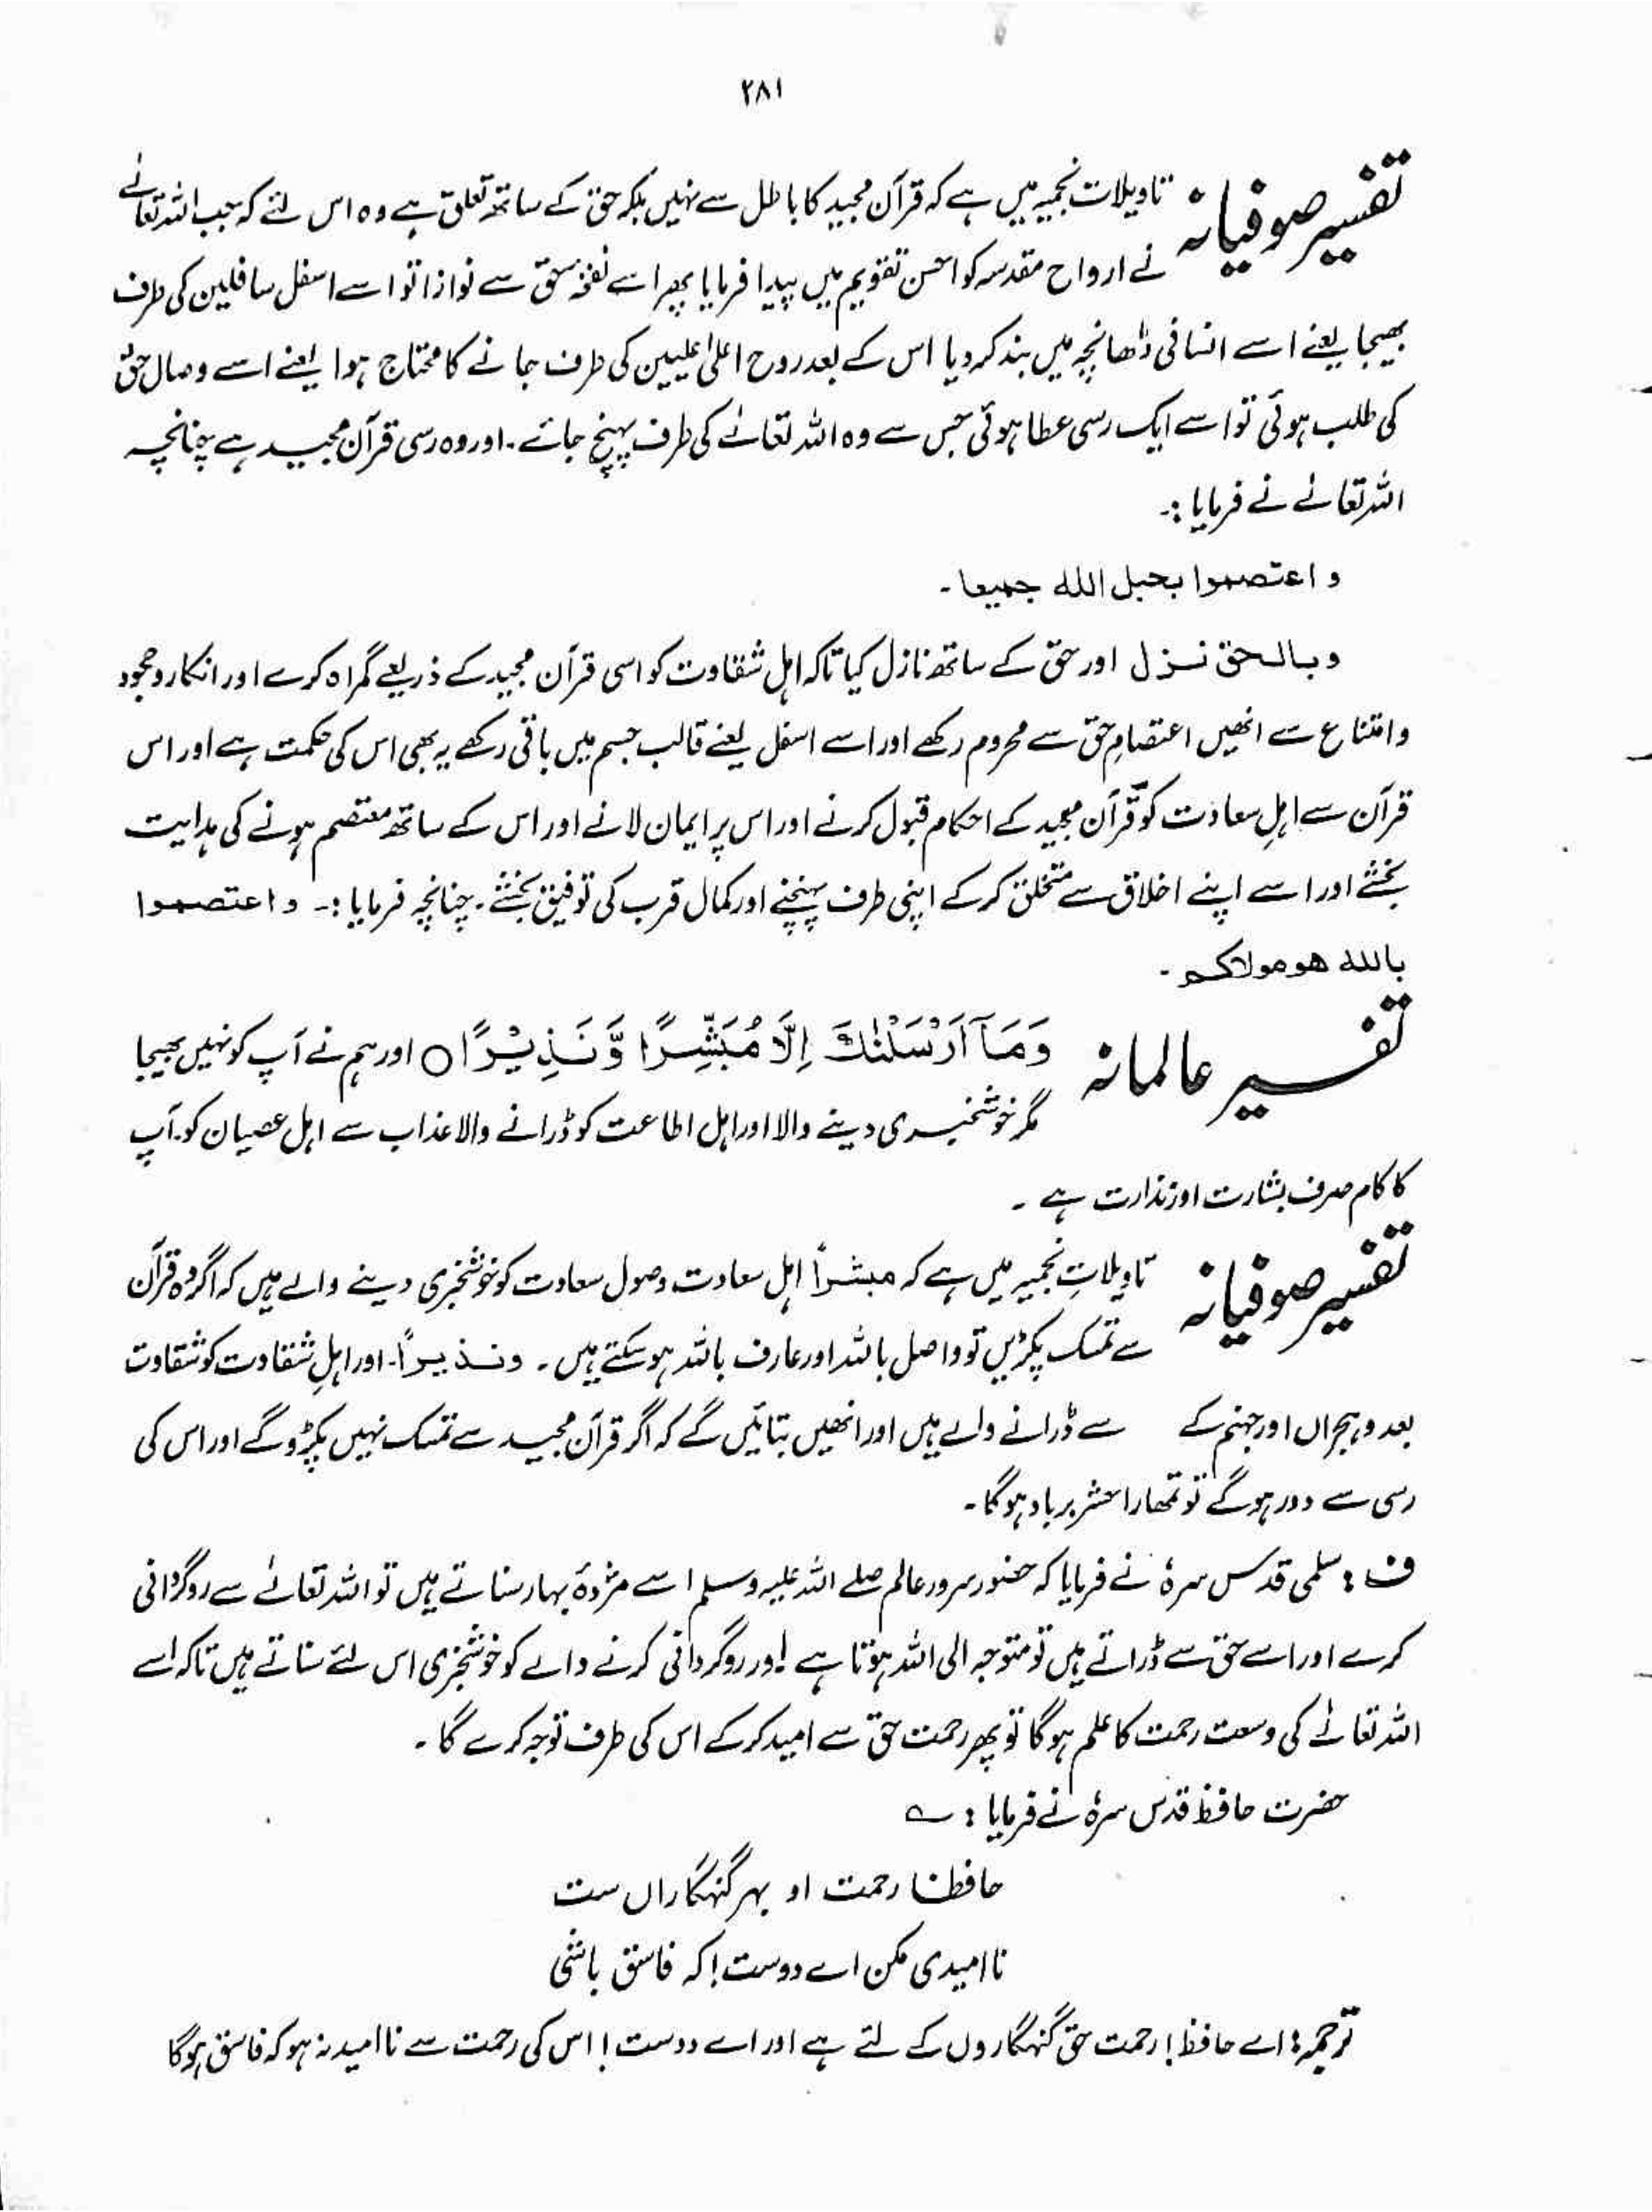 ۲۸۱
تفسیر صوفیانہ تاویلات نجمیہ میں ہے کہ قرآن مجید کا باطل سے نہیں بلکہ حق کے ساتھ تعلق ہے وہ اس لئے کہ جب اللہ تعالےٰ
نے ارواح مقدسہ کو احسن تقویم میں پیدا فرمایا پھر اسے نفخۂ حق سے نوازا تو اسے اسفل سافلین کی طرف
بھیجا یعنے اسے انسانی ڈھانچہ میں بند کر دیا اس کے بعد روح اعلیٰ علیین کی طرف جانے کا محتاج ہوا یعنے اسے وصال حق
کی طلب ہوئی تو اسے ایک رسی عطا ہوئی جس سے وہ اللہ تعالےٰ کی طرف پہنچ جائے۔ اور وہ رسی قرآن مجید ہے چنانچہ
اللہ تعالےٰ نے فرمایا :۔
و اعتصموا بحبل اللہ جمیعا۔
وبالحق نزل اور حق کے ساتھ نازل کیا تاکہ اہل شقاوت کو اسی قرآن مجید کے ذریعے گمراہ کرے اور انکار و جحود
و امتناع سے انھیں اعتصامِ حق سے محروم رکھے اور اسے اسفل یعنے قالب جسم میں باقی رکھے یہ بھی اس کی حکمت ہے اور اس
قرآن سے اہلِ سعادت کو قرآن مجید کے احکام قبول کرنے اور اس پر ایمان لانے اور اس کے ساتھ معتصم ہونے کی ہدایت
بخشے اور اسے اپنے اخلاق سے متخلق کر کے اپنی طرف پہنچنے اور کمال قرب کی توفیق بخشے۔ چنانچہ فرمایا :۔ و اعتصموا
باللہ ھو مولاکم۔
تفسیر عالمانہ وَمَآ اَرْسَلْنٰكَ اِلَّا مُبَشِّرًا وَّ نَذِيْرًا ○ اور ہم نے آپ کو نہیں بھیجا
مگر خوشخبری دینے والا اور اہل اطاعت کو ڈرانے والا عذاب سے اہل عصیان کو۔ آپ
کا کام صرف بشارت اور نذارت ہے ۔
تفسیر صوفیانہ تاویلاتِ نجمیہ میں ہے کہ مبشراً اہل سعادت وصول سعادت کو خوشخبری دینے والے ہیں کہ اگر وہ قرآن
سے تمسک پکڑیں تو واصل باللہ اور عارف باللہ ہو سکتے ہیں ۔ ونذیراً۔ اور اہلِ شقاوت کو شقاوت
بعد و ہجراں اور جہنم کے سے ڈرانے والے ہیں اور انھیں بتائیں گے کہ اگر قرآن مجید سے تمسک نہیں پکڑو گے اور اس کی
رسی سے دور ہو گے تو تمھارا حشر برباد ہو گا۔
ف : سلمی قدس سرہٗ نے فرمایا کہ حضور سرور عالم صلے اللہ علیہ وسلم اسے مژدۂ بہار سناتے ہیں تو اللہ تعالےٰ سے روگردانی
کرے اور اسے حق سے ڈراتے ہیں تو متوجہ الی اللہ ہوتا ہے اور روگردانی کرنے والے کو خوشخبری اس لئے سناتے ہیں تاکہ اسے
اللہ تعالےٰ کی وسعت رحمت کا علم ہوگا تو پھر رحمت حق سے امید کر کے اس کی طرف توجہ کرے گا ۔
حضرت حافظ قدس سرہٗ نے فرمایا : ؎
حافظا رحمت او بہر گنہگاراں ست
ناامیدی مکن اے دوست! کہ فاسق باشی
ترجمہ : اے حافظ! رحمت حق گنہگاروں کے لئے ہے اور اے دوست! اس کی رحمت سے ناامید نہ ہو کہ فاسق ہوگا